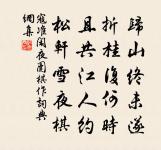 歸山終未遂
折桂復何時
且共江人約
松軒雪夜棋
寇准閑夜圍棋作詞典
網集